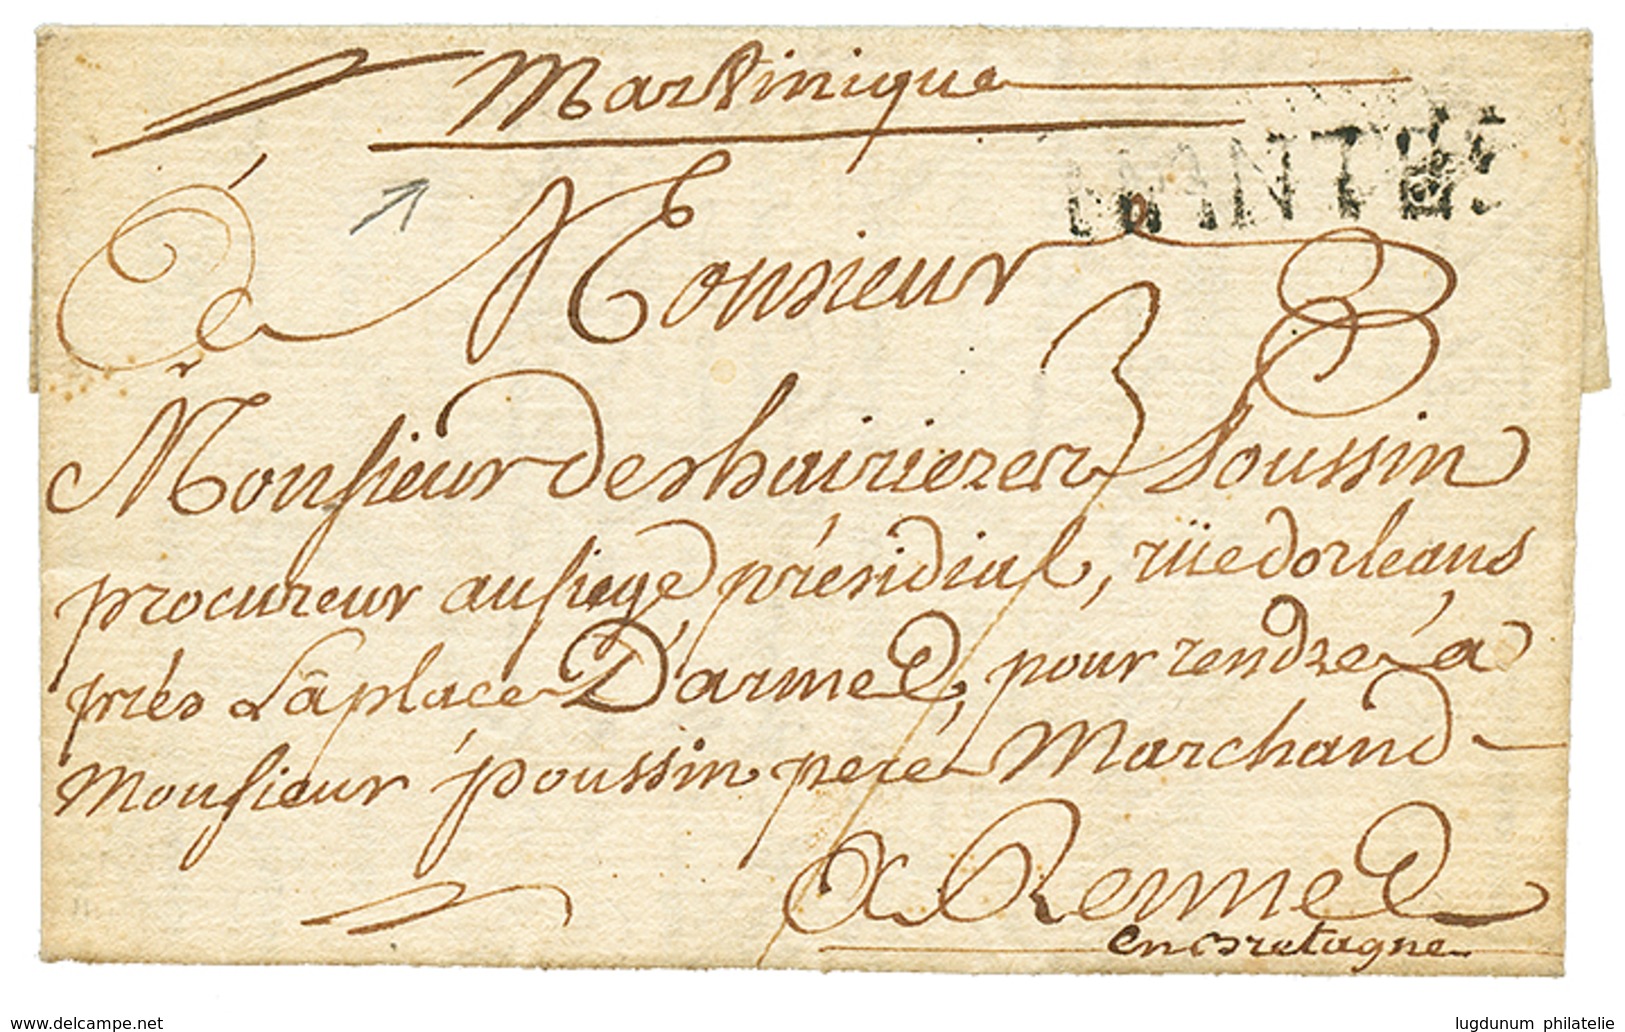 Martinique
NANTES
à Monsieur
3
Monsieur Deshairierer Poussin
procureur au siege présidial, rüe dorleans
prés La place D'armes, pour rendre a
Monsieur poussin pere Marchand
a Rennes
en Bretagne
www.delcampe.net
lugdunum philatelie